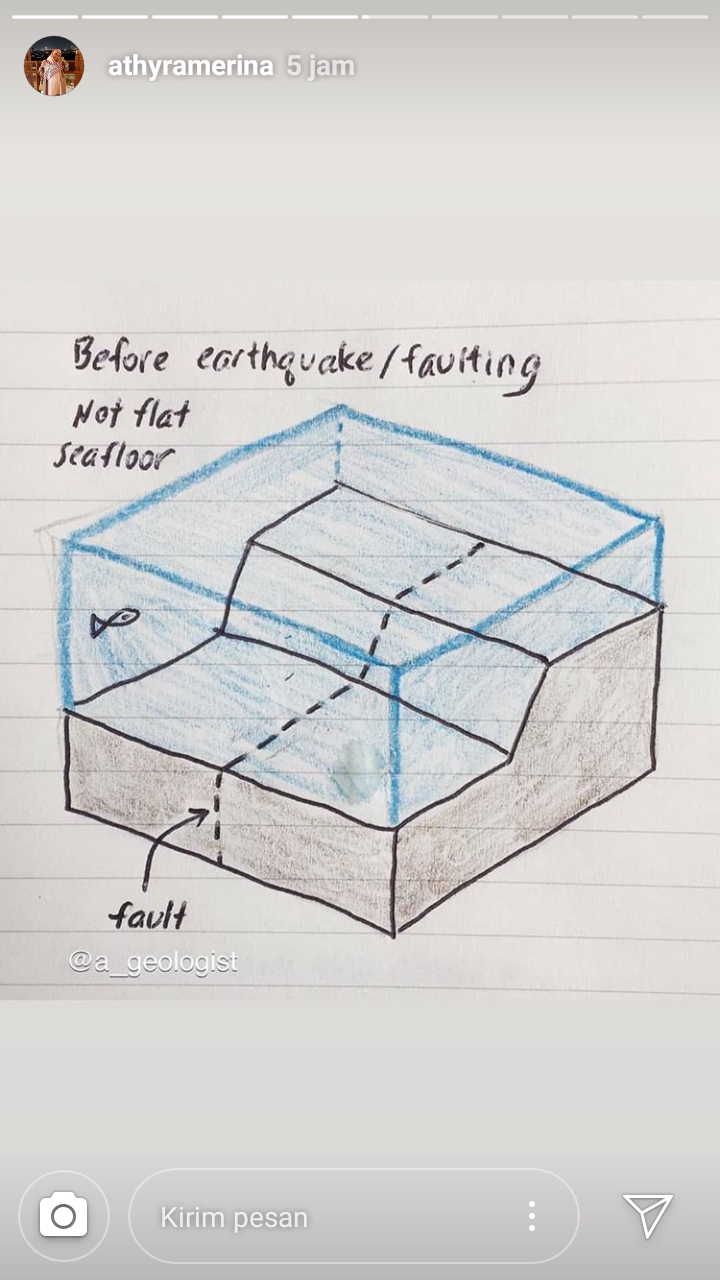 athyramerina 5 jam
Before earthquake/faulting
Not flat
seafloor
fault
@a_geologist
Kirim pesan